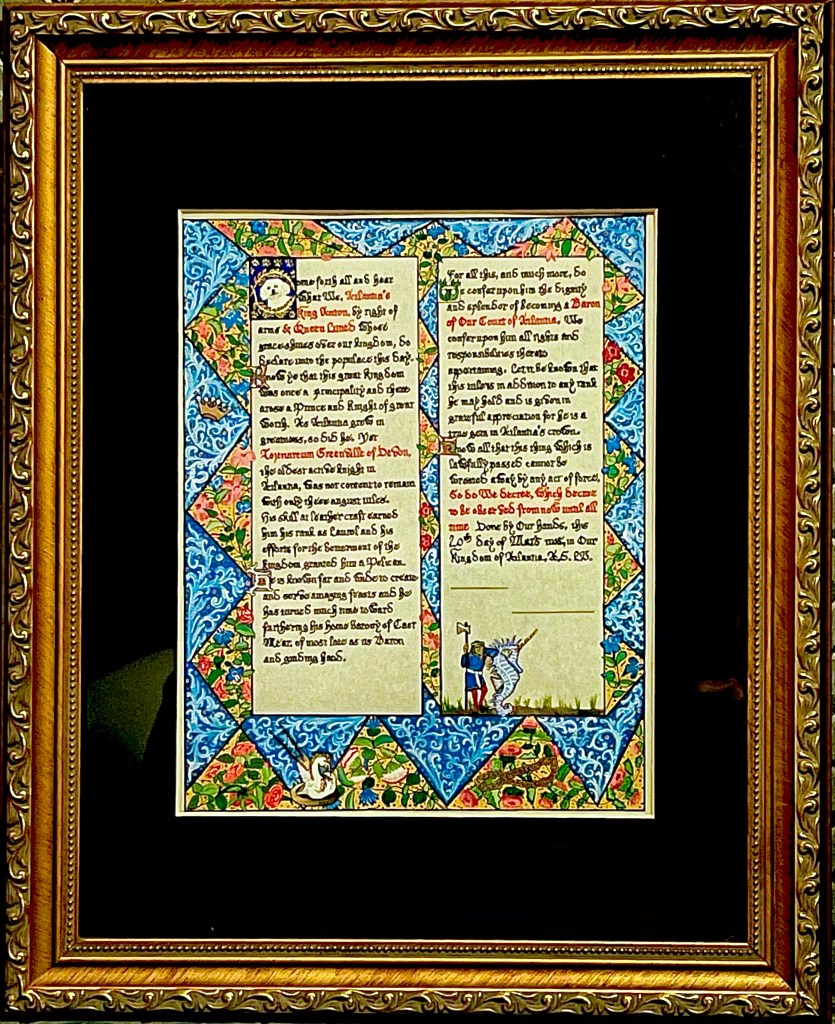 Come forth all and hear
What We, Atlantia's
King Anton, by right of
arms & Queen Luned whose
grace shines over our kingdom, do
declare unto the populace this day.
Know ye that this great kingdom
was once a principality and there
arose a Prince and Knight of great
worth. As Atlantia grew in
greatness, so did he. Yet
Greenville of Devon,
the oldest active knight in
Atlantia, was not content to remain
with only these august titles.
His skill at leather craft earned
him his rank as Laurel and his
efforts for the betterment of the
kingdom granted him a Pelican.
He is known far and wide to create
and serve amazing feasts and he
has turned much time toward
furthering his home Barony of
of most late as its Baron
and guiding hand.
For all this, and much more, do
We confer upon him the dignity
and splendor of becoming a Baron
of Our Court of Atlantia. We
confer upon him all rights and
responsibilities thereto
appertaining. Let it be known that
this title is in addition to any rank
he may hold and is given in
grateful appreciation for he is a
true gem in Atlantia's crown.
Know all that this thing which is
lawfully passed cannot be
wrested away by any act of force.
So do We decree, which decree
to be observed from now until all
time. Done by Our hands, this
20th day of in Our
Kingdom of Atlantia, A.S.